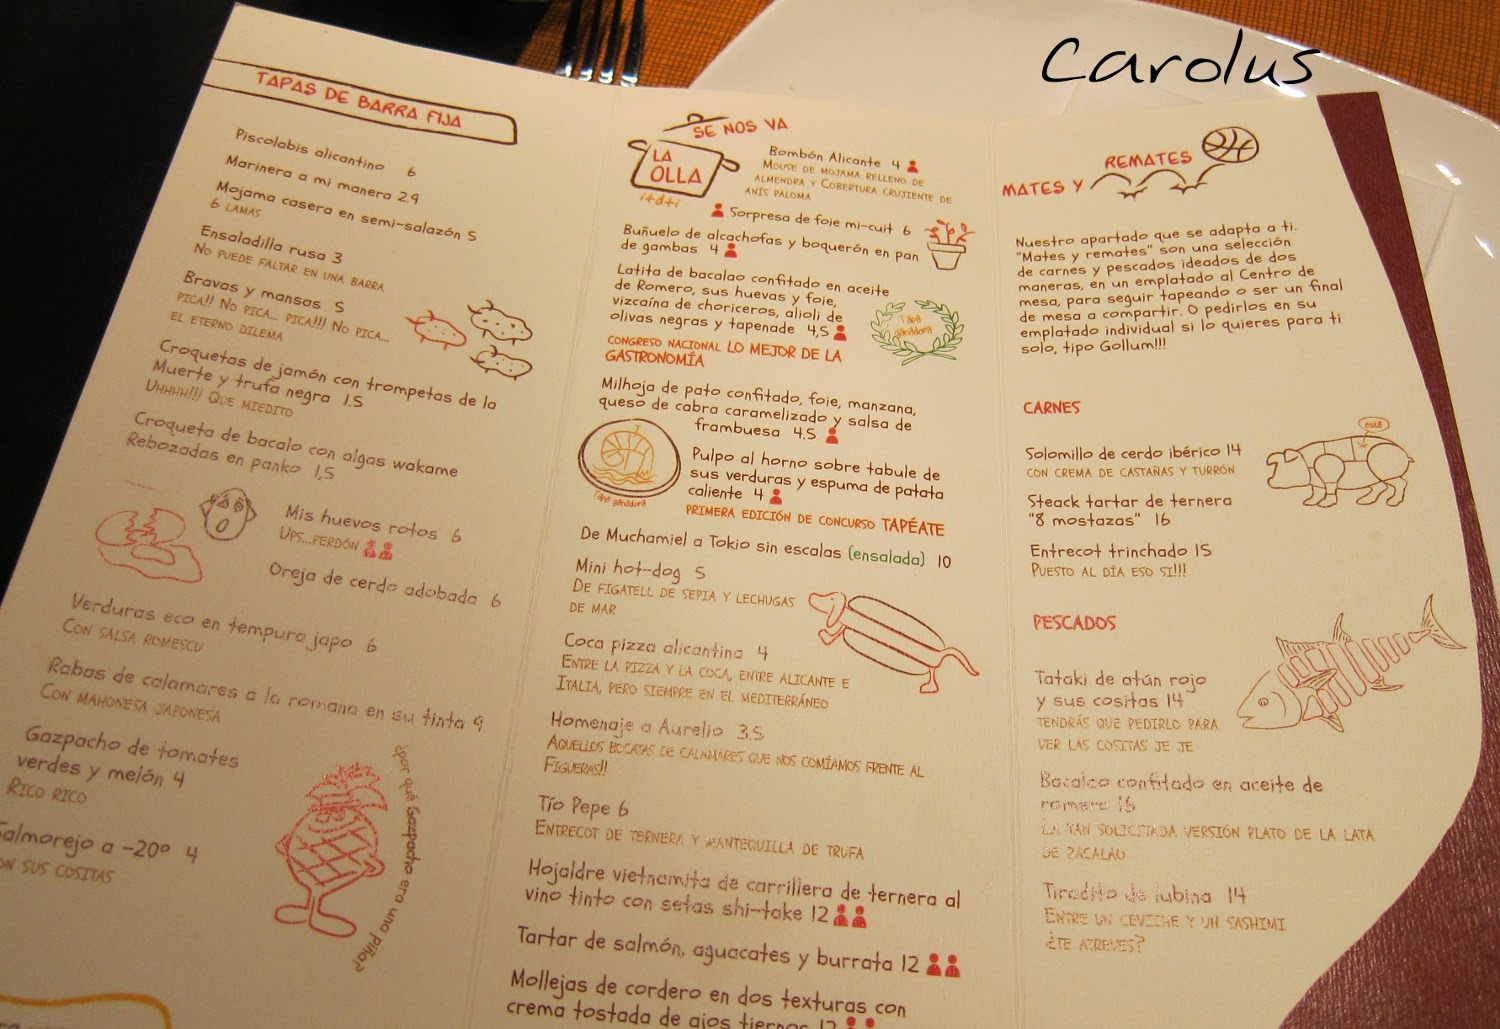 Carolus
TAPAS DE BARRA FIJA
Piscolabis alicantino 6
Marinera a mi manera 2.9
Mojama casera en semi-salazón 5
6 LAMAS
Ensaladilla rusa 3
NO PUEDE FALTAR EN UNA BARRA
Bravas y mansas 5
PICA!! NO PICA... PICA!!! NO PICA...
EL ETERNO DILEMA
Croquetas de jamón con trompetas de la
Muerte y trufa negra 1.5
UHHHH!!! QUE MIEDITO
Croqueta de bacalo con algas wakame
Rebozadas en panko 1,5
Mis huevos rotos 6
UPS...PERDÓN
Oreja de cerdo adobada 6
Verduras eco en tempura japo 6
CON SALSA ROMESCU
Rabas de calamares a la romana en su tinta 9
CON MAHONESA JAPONESA
Gazpacho de tomates
verdes y melón 4
RICO RICO
¿por qué Gazpacho era una piña?
Salmorejo a -20º 4
CON SUS COSITAS
SE NOS VA
LA
OLLA
i+d+i
Bombón Alicante 4
MOUSE DE MOJAMA RELLENO DE
ALMENDRA Y COBERTURA CRUJIENTE DE
ANÍS PALOMA
Sorpresa de foie mi-cuit 6
Buñuelo de alcachofas y boquerón en pan
de gambas 4
Latita de bacalao confitado en aceite
de Romero, sus huevas y foie,
vizcaína de choriceros, alioli de
olivas negras y tapenade 4,5
Tapa
ganadora
CONGRESO NACIONAL LO MEJOR DE LA
GASTRONOMÍA
Milhoja de pato confitado, foie, manzana,
queso de cabra caramelizado y salsa de
frambuesa 4.5
Tapa ganadora
Pulpo al horno sobre tabule de
sus verduras y espuma de patata
caliente 4
PRIMERA EDICIÓN DE CONCURSO TAPÉATE
De Muchamiel a Tokio sin escalas (ensalada) 10
Mini hot-dog 5
DE FIGATELL DE SEPIA Y LECHUGAS
DE MAR
Coca pizza alicantina 4
ENTRE LA PIZZA Y LA COCA, ENTRE ALICANTE E
ITALIA, PERO SIEMPRE EN EL MEDITERRÁNEO
Homenaje a Aurelio 3.5
AQUELLOS BOCATAS DE CALAMARES QUE NOS COMÍAMOS FRENTE AL
FIGUERAS!!
Tío Pepe 6
ENTRECOT DE TERNERA Y MANTEQUILLA DE TRUFA
Hojaldre vietnamita de carrillera de ternera al
vino tinto con setas shi-take 12
Tartar de salmón, aguacates y burrata 12
Mollejas de cordero en dos texturas con
crema tostada de ajos tiernos 12
MATES Y REMATES
Nuestro apartado que se adapta a ti.
"Mates y remates" son una selección
de carnes y pescados ideados de dos
maneras, en un emplatado al Centro de
mesa, para seguir tapeando o ser un final
de mesa a compartir. O pedirlos en su
emplatado individual si lo quieres para ti
solo, tipo Gollum!!!
CARNES
esta
Solomillo de cerdo ibérico 14
CON CREMA DE CASTAÑAS Y TURRÓN
Steack tartar de ternera
"8 mostazas" 16
Entrecot trinchado 15
PUESTO AL DÍA ESO SI!!!
PESCADOS
Tataki de atún rojo
y sus cositas 14
TENDRÁS QUE PEDIRLO PARA
VER LAS COSITAS JE JE
Bacalao confitado en aceite de
romero 16
LA TAN SOLICITADA VERSIÓN PLATO DE LA LATA
DE BACALAO
Tiradito de lubina 14
ENTRE UN CEVICHE Y UN SASHIMI
¿TE ATREVES?